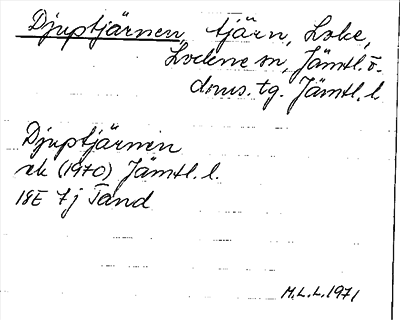 Djuptjärnen, tjärn, Lobe,
Lockne sn, Jämtl. ö.
doms. tg. Jämtl. l.
Djuptjärnen
rk (1970) Jämtl. l.
18E 7j Tand
M.L.L. 1971